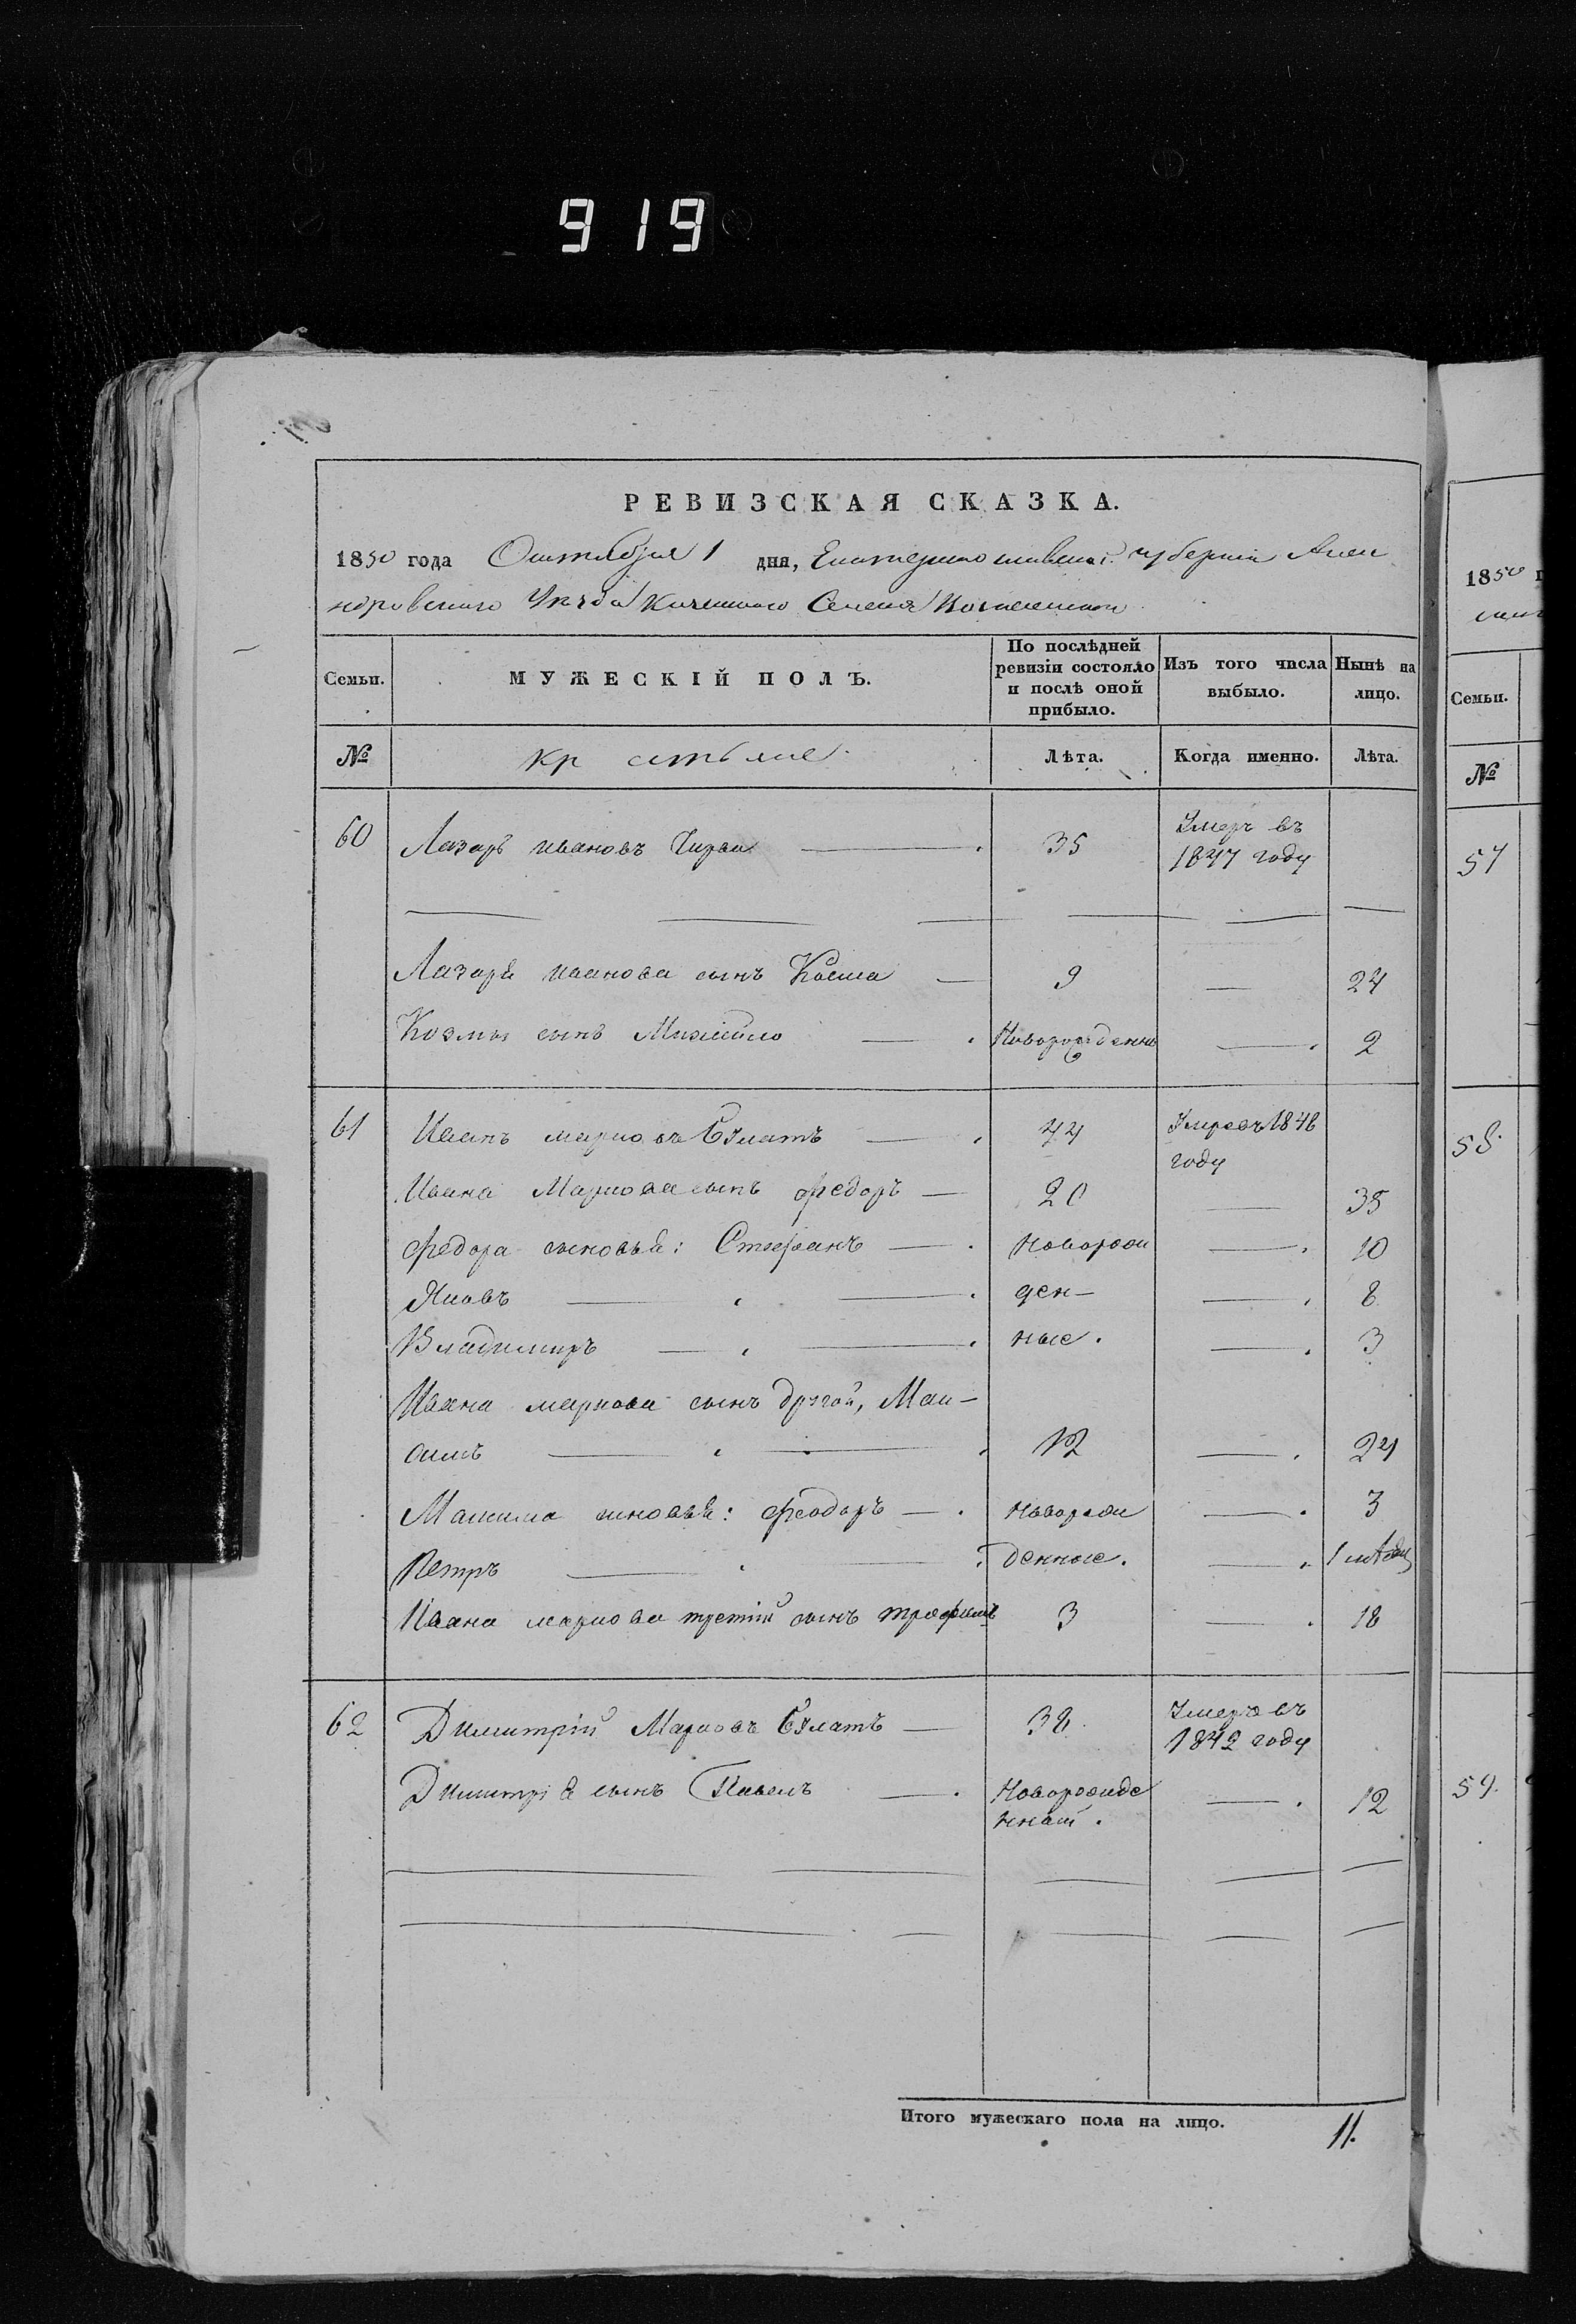 919
РЕВИЗСКАЯ СКАЗКА.
1850 года Октября 1 дня, Екатеринославской губернии Алексан
ндровского Уезда Казенного Селения
Семьи.
МУЖЕСКІЙ ПОЛЪ.
По послѣдней ревизіи состояло и послѣ оной прибыло.
Изъ того числа выбыло.
Нынѣ на лицо.
№
крестьяне
Лѣта.
Когда именно.
Лѣта.
60 Лазарь Ивановъ 35 Умеръ въ
1847 году
Лазаря Иванова сынъ Косма — 9 — 24
Козмы сынъ Михайло — Новорожденны — 2
61 Иванъ Марковъ Булатъ — 44 Умре въ 1848
году
Ивана Маркова сынъ Федоръ — 20 — 35
Федора сыновья: Стефанъ — Новорож — 10
Яковъ — ден- — 8
Владимиръ — ные. — 3
Ивана Маркова сынъ другой, Мак-
симъ — 12 — 27
Максима сыновья: Феодоръ — новорож — 3
Петръ — денные. — 1 мѣсяц
Ивана Маркова третій сынъ Трофимъ 3 — 18
62 Димитрій Марковъ Булатъ — 38 Умеръ въ
1842 году
Димитрія сынъ Павелъ — Новорожде — 12
нный.
Итого мужескаго пола на лицо. 11.
1850
Семьи.
№
57
58.
59.